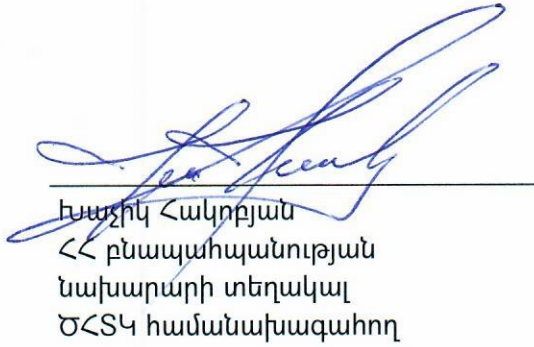 Խաչիկ Հակոբյան
ՀՀ բնապահպանության
նախարարի տեղակալ
ԾՀՏԿ համանախագահող